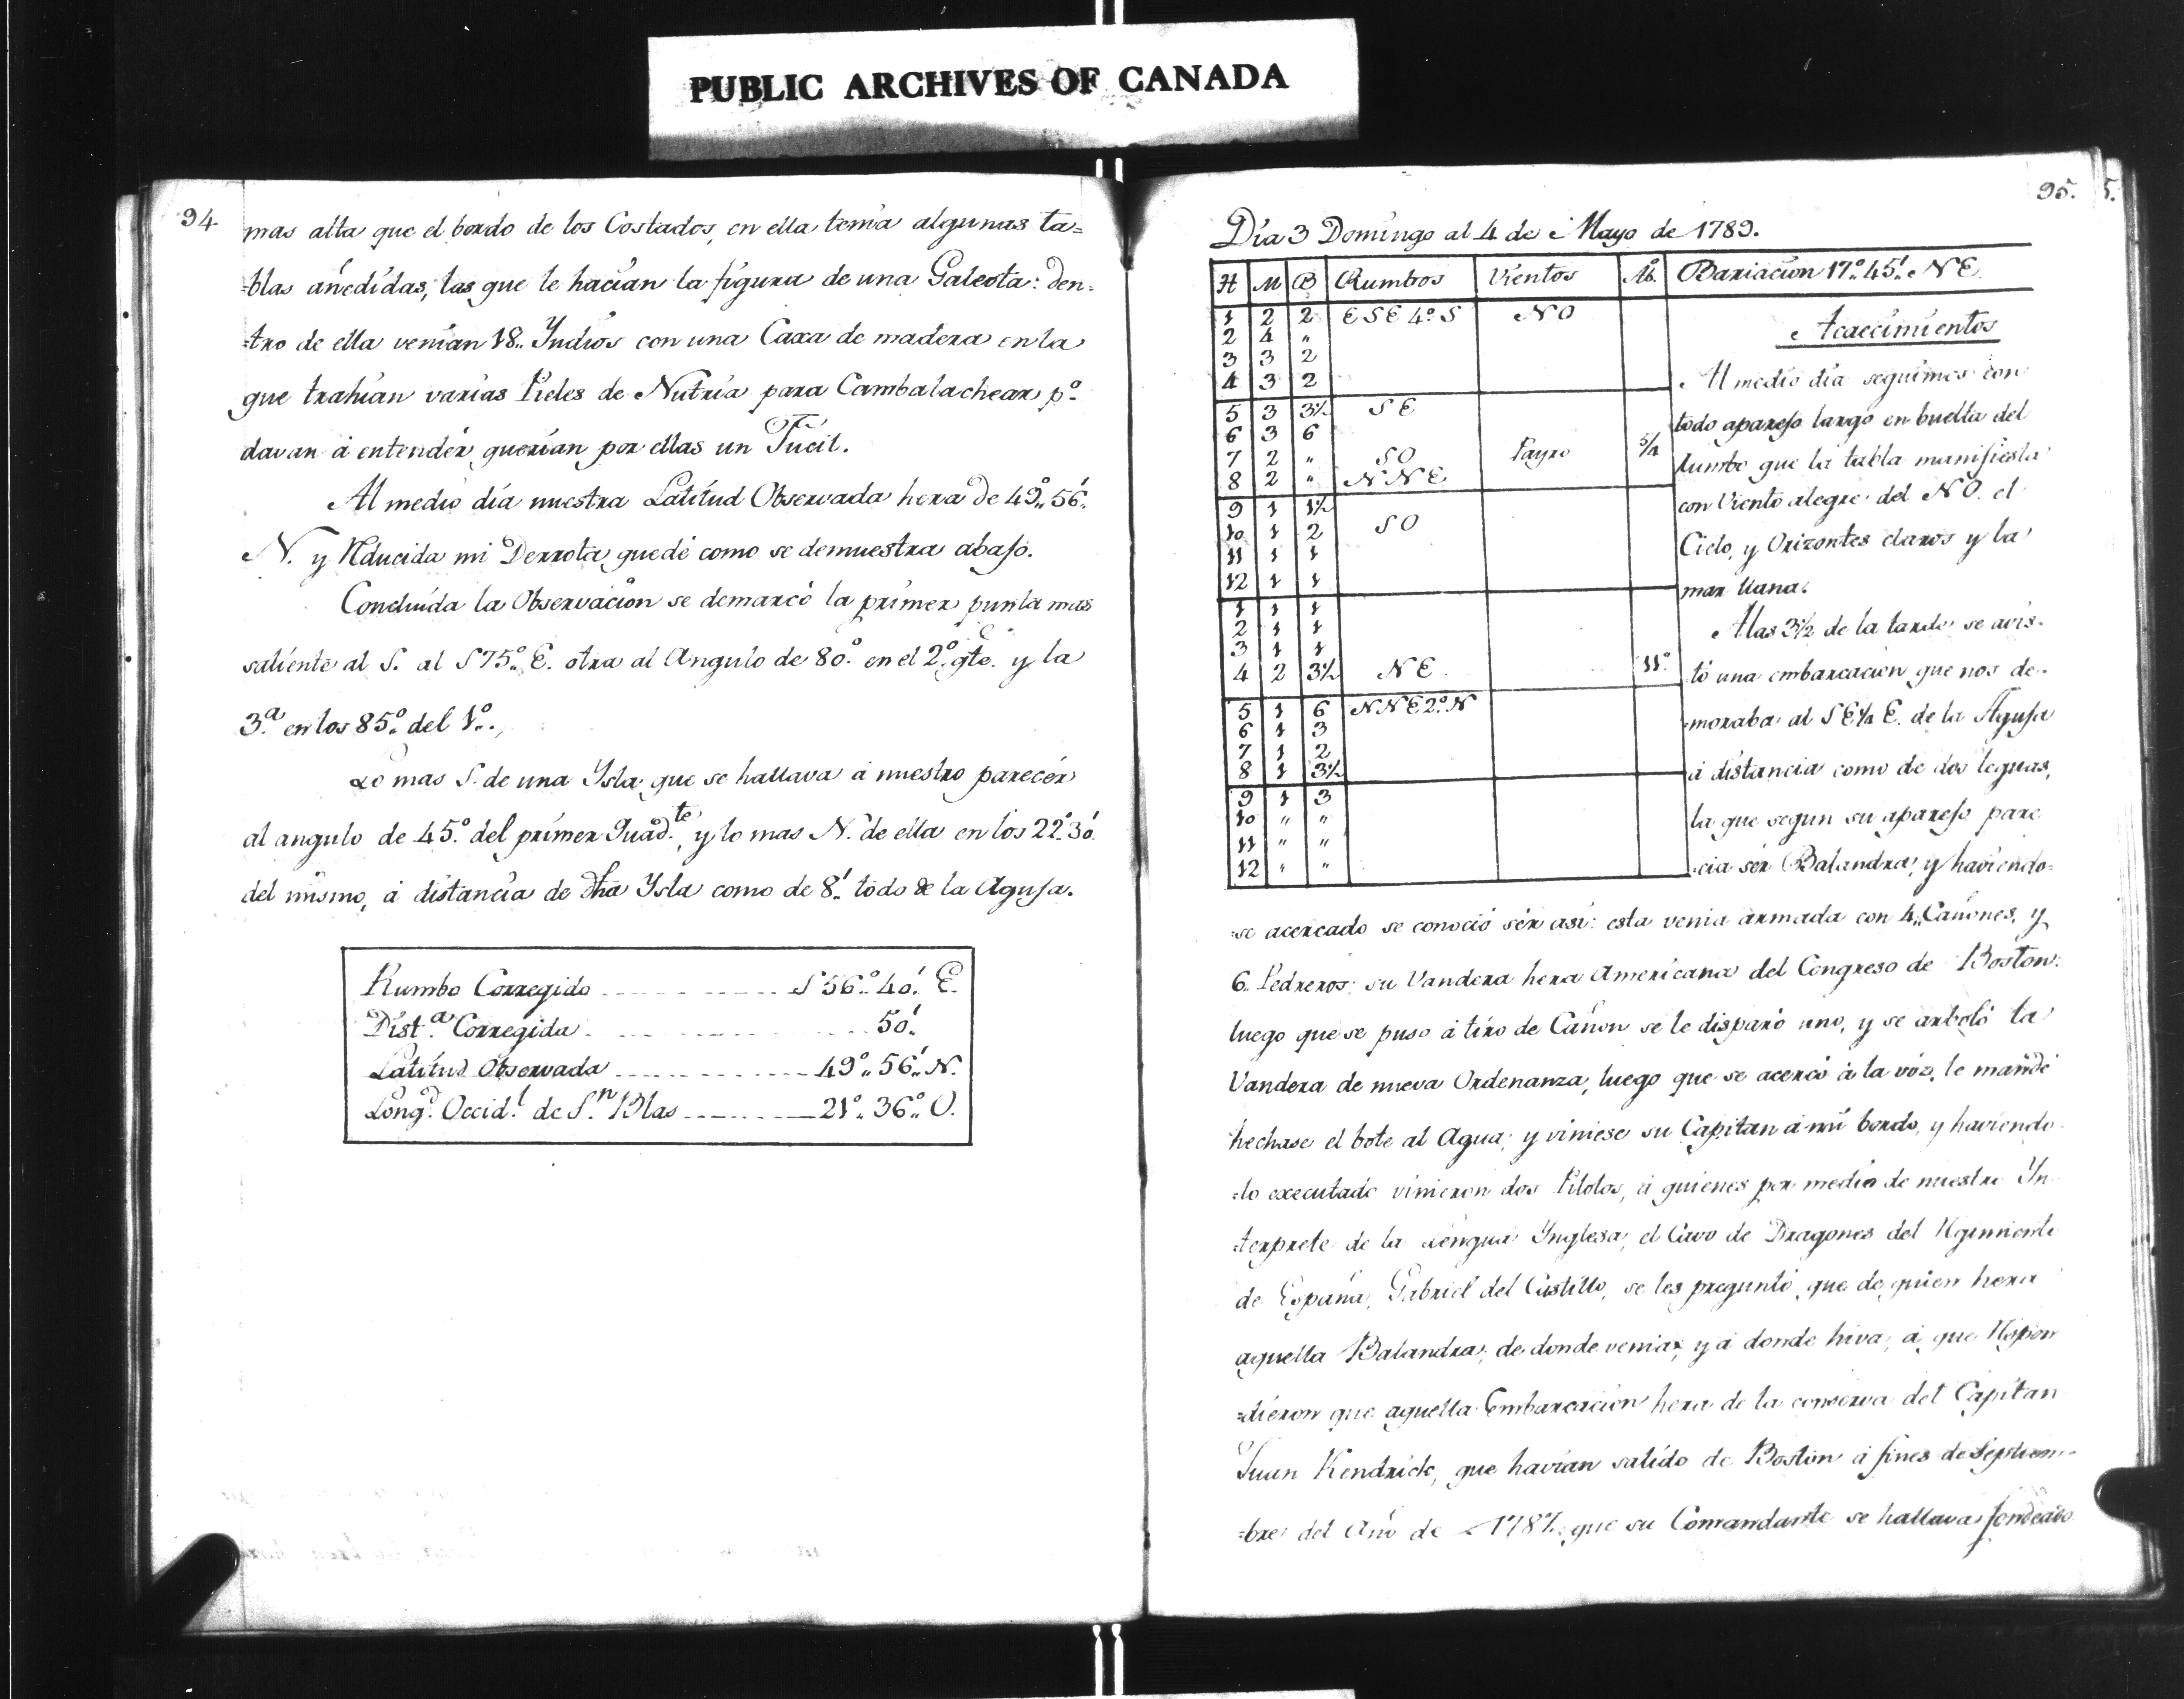 PUBLIC ARCHIVES OF CANADA
94
mas alta que el bordo de los Costados, en ella tenia algunas ta=
=blas añedidas, las que le hacian la figura de una Galeota: den=
=tro de ella venian 18.. Yndios con una Caxa de madera en la
que trahian varias Pieles de Nutria para Cambalachear p.º
davan á entender querian por ellas un Fucil.
Al medio dia nuestra Latitud Observada hera de 49º.. 56'.
N. y Rducida mi Derrota quedé como se demuestra abajo.
Concluida la Observacion se demarcó la primer punta mas
saliente al S. al S 75º.. E. otra al Angulo de 80.º en el 2.º qte. y la
3.ª en los 85.º del 1.º,
Lo mas S. de una Ysla que se hallava á nuestro parecér
al angulo de 45.º del primer Quad.te, y lo mas N. de ella en los 22º.. 30'.
del mismo, á distancia de dha Ysla como de 8'.. todo de la Aguja.
Rumbo Corregido S 56º.. 40'.. E.
Dist.ª Corregida 50'..
Latitud Observada 49º.. 56'.. N.
Long.d Occid.l de S.n Blas 21º.. 36º.. O.
95.
5.
Dia 3 Domingo al 4 de Mayo de 1789.
H M B Rumbos Vientos Ab. Bariacion 17º.. 45'.. NE.
1 2 2 ESE 4º S NO
2 4 "
3 3 2
4 3 2
5 3 3½ SE
6 3 6
7 2 " SO Payro 5/a
8 2 " NNE
9 1 1½
10 1 2 SO
11 1 1
12 1 1
1 1 1
2 1 1
3 1 1
4 2 3½ NE. 11º
5 1 6 NNE 2º N
6 1 3
7 1 2
8 1 3½
9 1 3
10 " "
11 " "
12 " "
Acaecimientos
Al medio dia seguimos con
todo aparejo largo en buelta del
Rumbo que la tabla manifiesta
con Viento alegre del NO. el
Cielo, y Orizontes claros y la
mar llana.
A las 3½ de la tarde se avis-
tó una embarcacion que nos de-
=moraba al SE¼E. de la Aguja
á distancia como de dos leguas,
la que segun su aparejo pare
=cia sér Balandra, y haviendo=
=se acercado se conoció sér asi: esta venia armada con 4.. Cañones, y
6.. Pedreros: su Vandera hera Americana del Congreso de Boston:
luego que se puso á tiro de Cañon se le disparó uno, y se arboló la
Vandera de nueva Ordenanza, luego que se acercó á la vóz, le mandé
hechase el bote al Agua; y viniese su Capitan á mi bordo, y haviendo-
=lo executado vinieron dos Pilotos, á quienes por medio de nuestro Yn
=terprete de la Lengua Ynglesa, el Cavo de Dragones del Rgimiento
de España, Gabriel del Castillo, se les preguntó, que de quien hera
aquella Balandra; de donde venia, y á donde hiva, á que Rspon
=dieron que aquella Embarcacion hera de la conserva del Capitan
Juan Kendrick, que havian salido de Boston á fines de Septiem-
=bre del Año de 1787.. que su Comandante se hallava fondeado